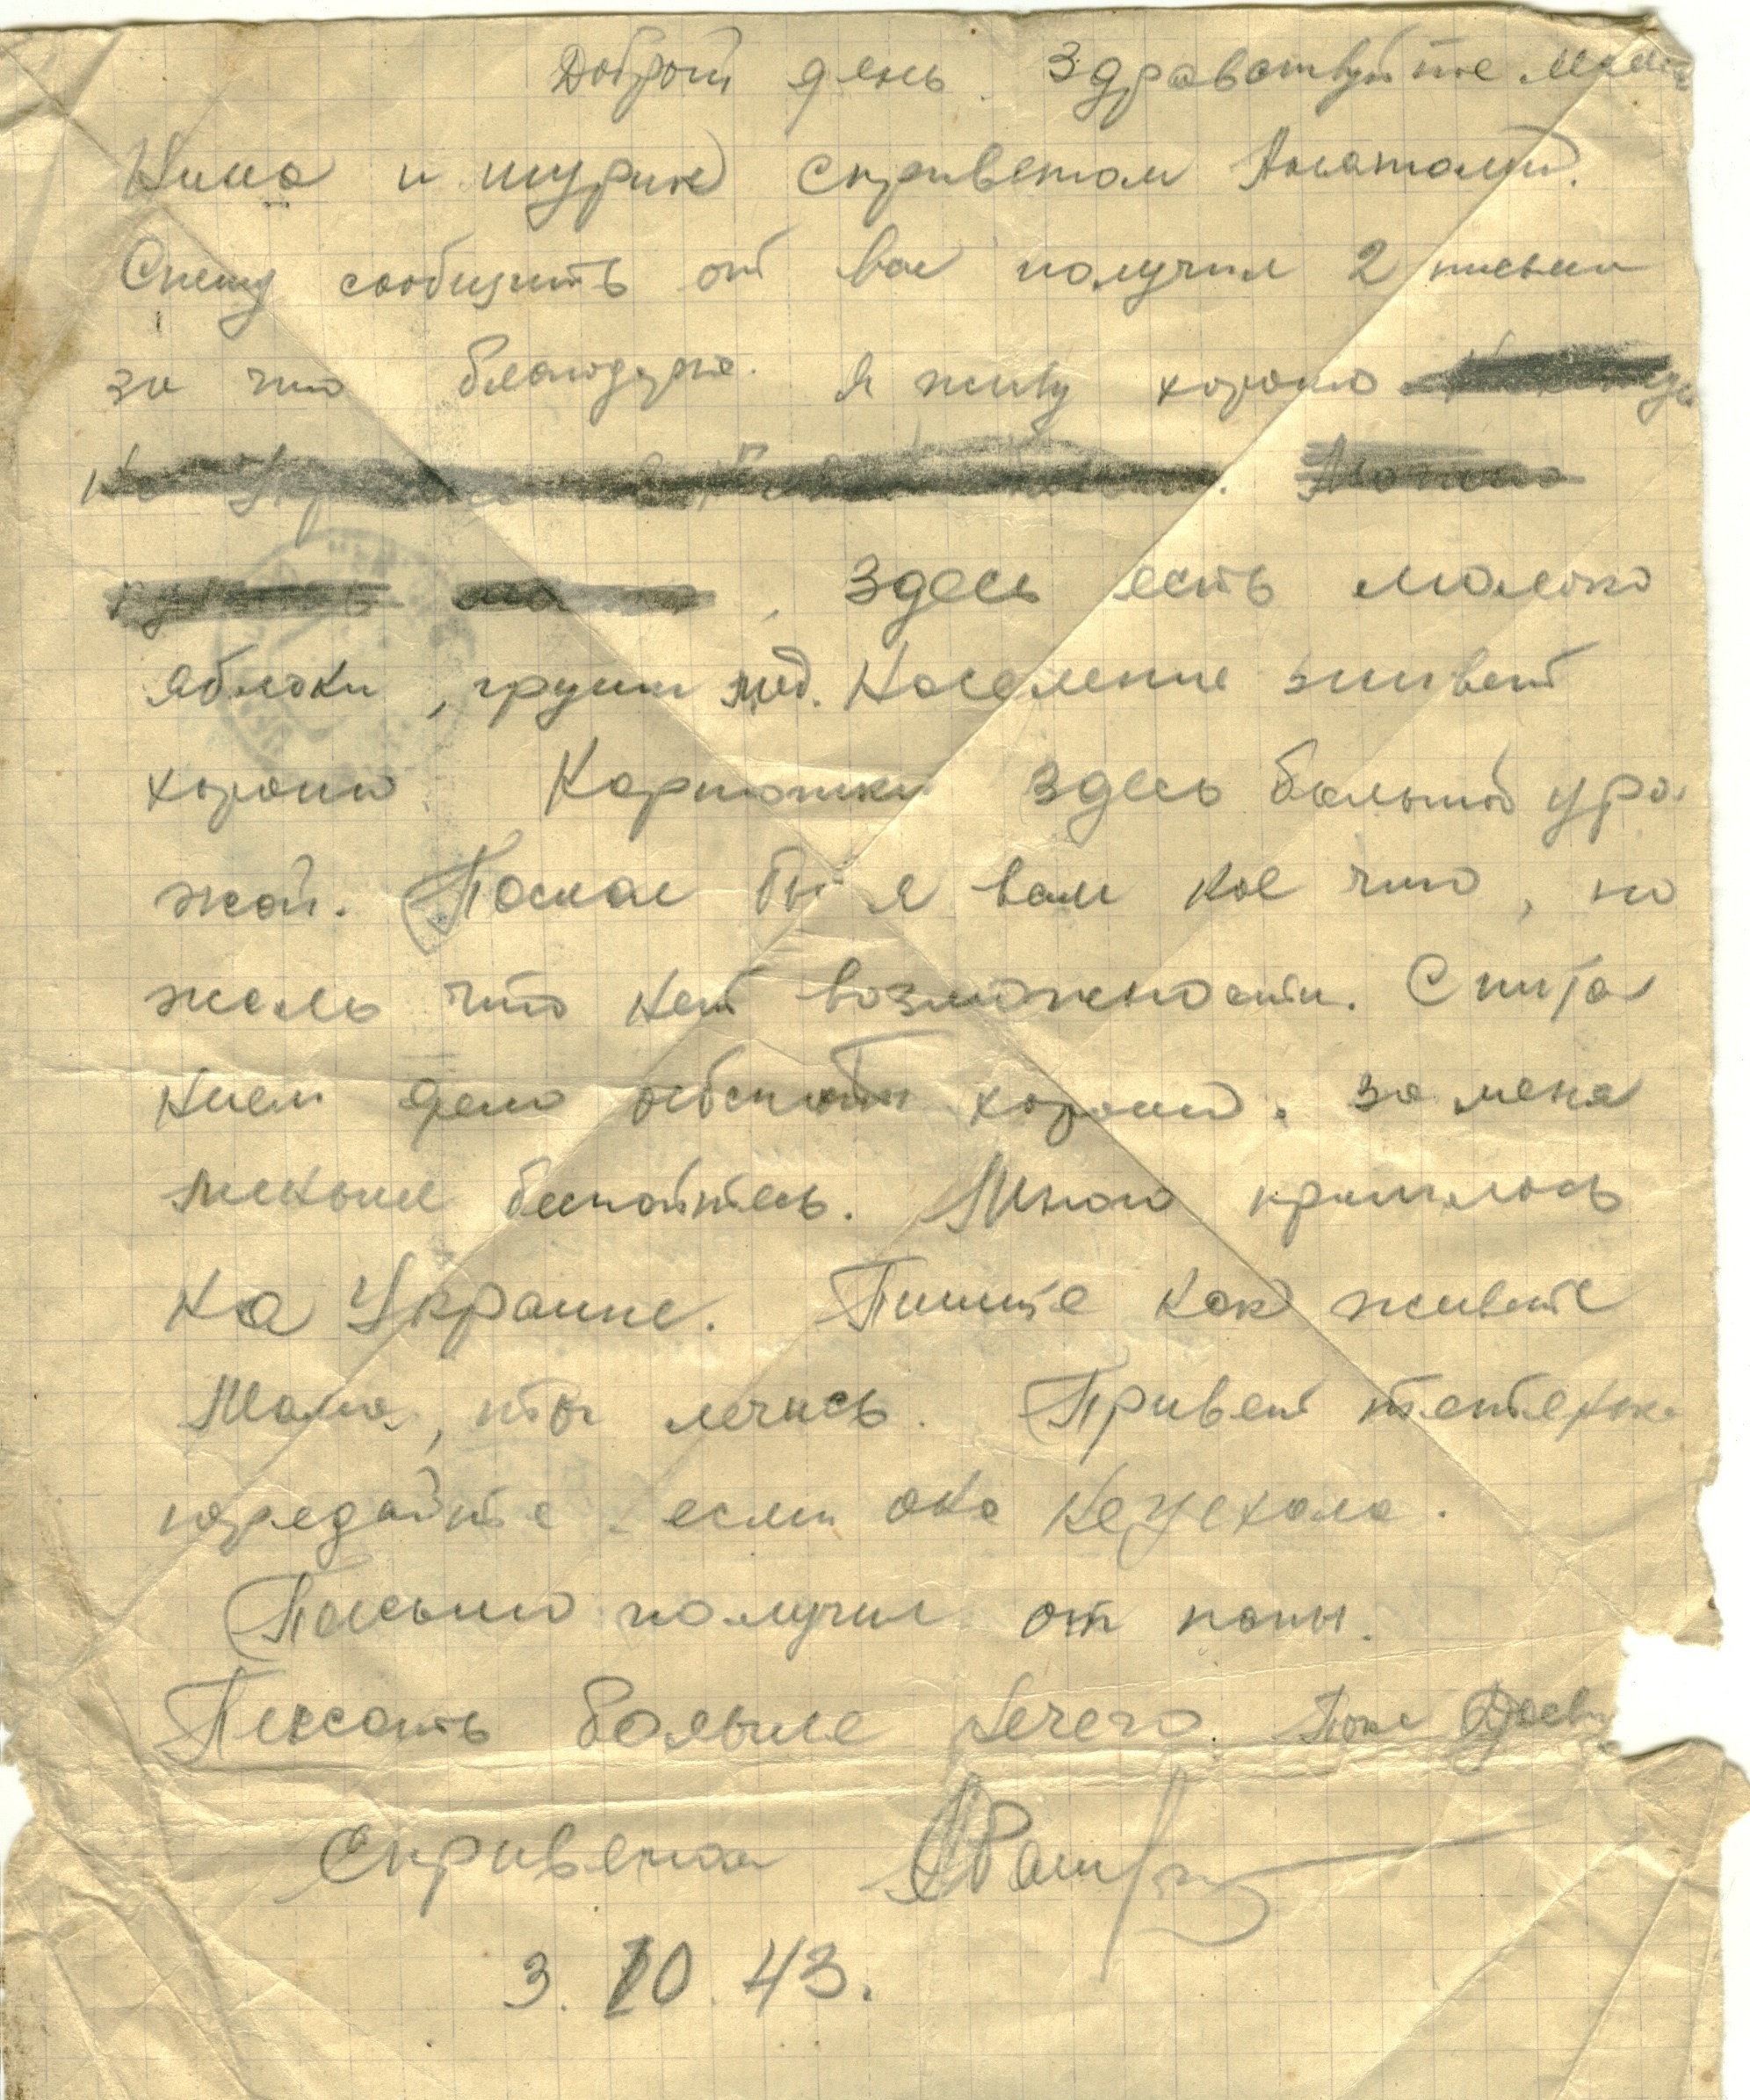 Добрый день. Здравствуйте мама
Нина и шурик спириветом Анатолий.
Спешу сообщить от вас получил 2 письма
за что благодарю. Я живу хорошо
Здесь есть молоко
яблоки, груши мёд. Население живет
хорошо. Картошки здесь большой уро
жай. Послал бы я вам кое что, но
жаль что нет возможности. С пита
нием дело обстоит хорошо. За меня
меньше беспойтесь. Много пришлось
на Украине. Пишите как живете
Мама, ты лечись. Привет тетеньке
передайте если она неуехала.
Письмо получил от папы.
Писать больше нечего. Пока
Сприветом
3. 10. 43.